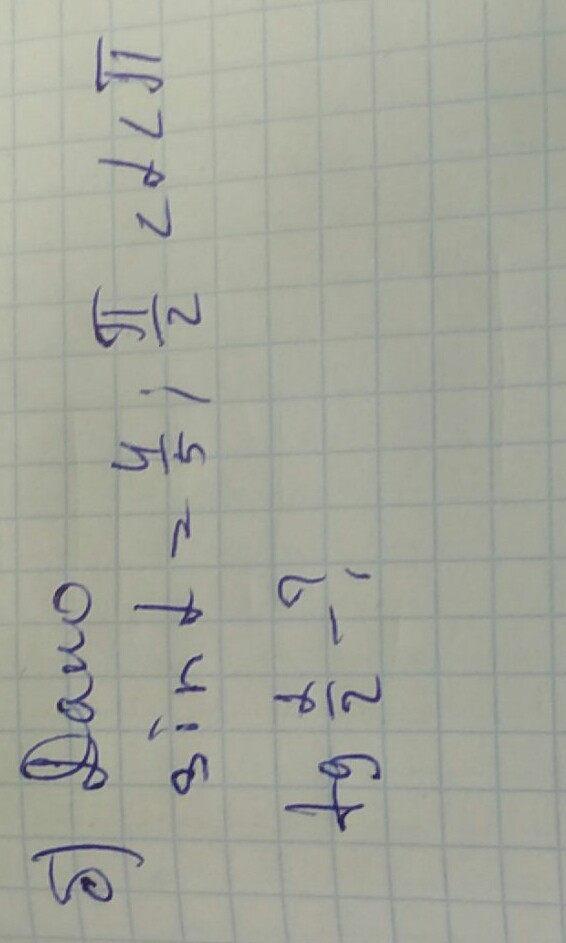 б) Дано
sin t = 4/5 ; π/2 < t < π
tg t/2 - ?